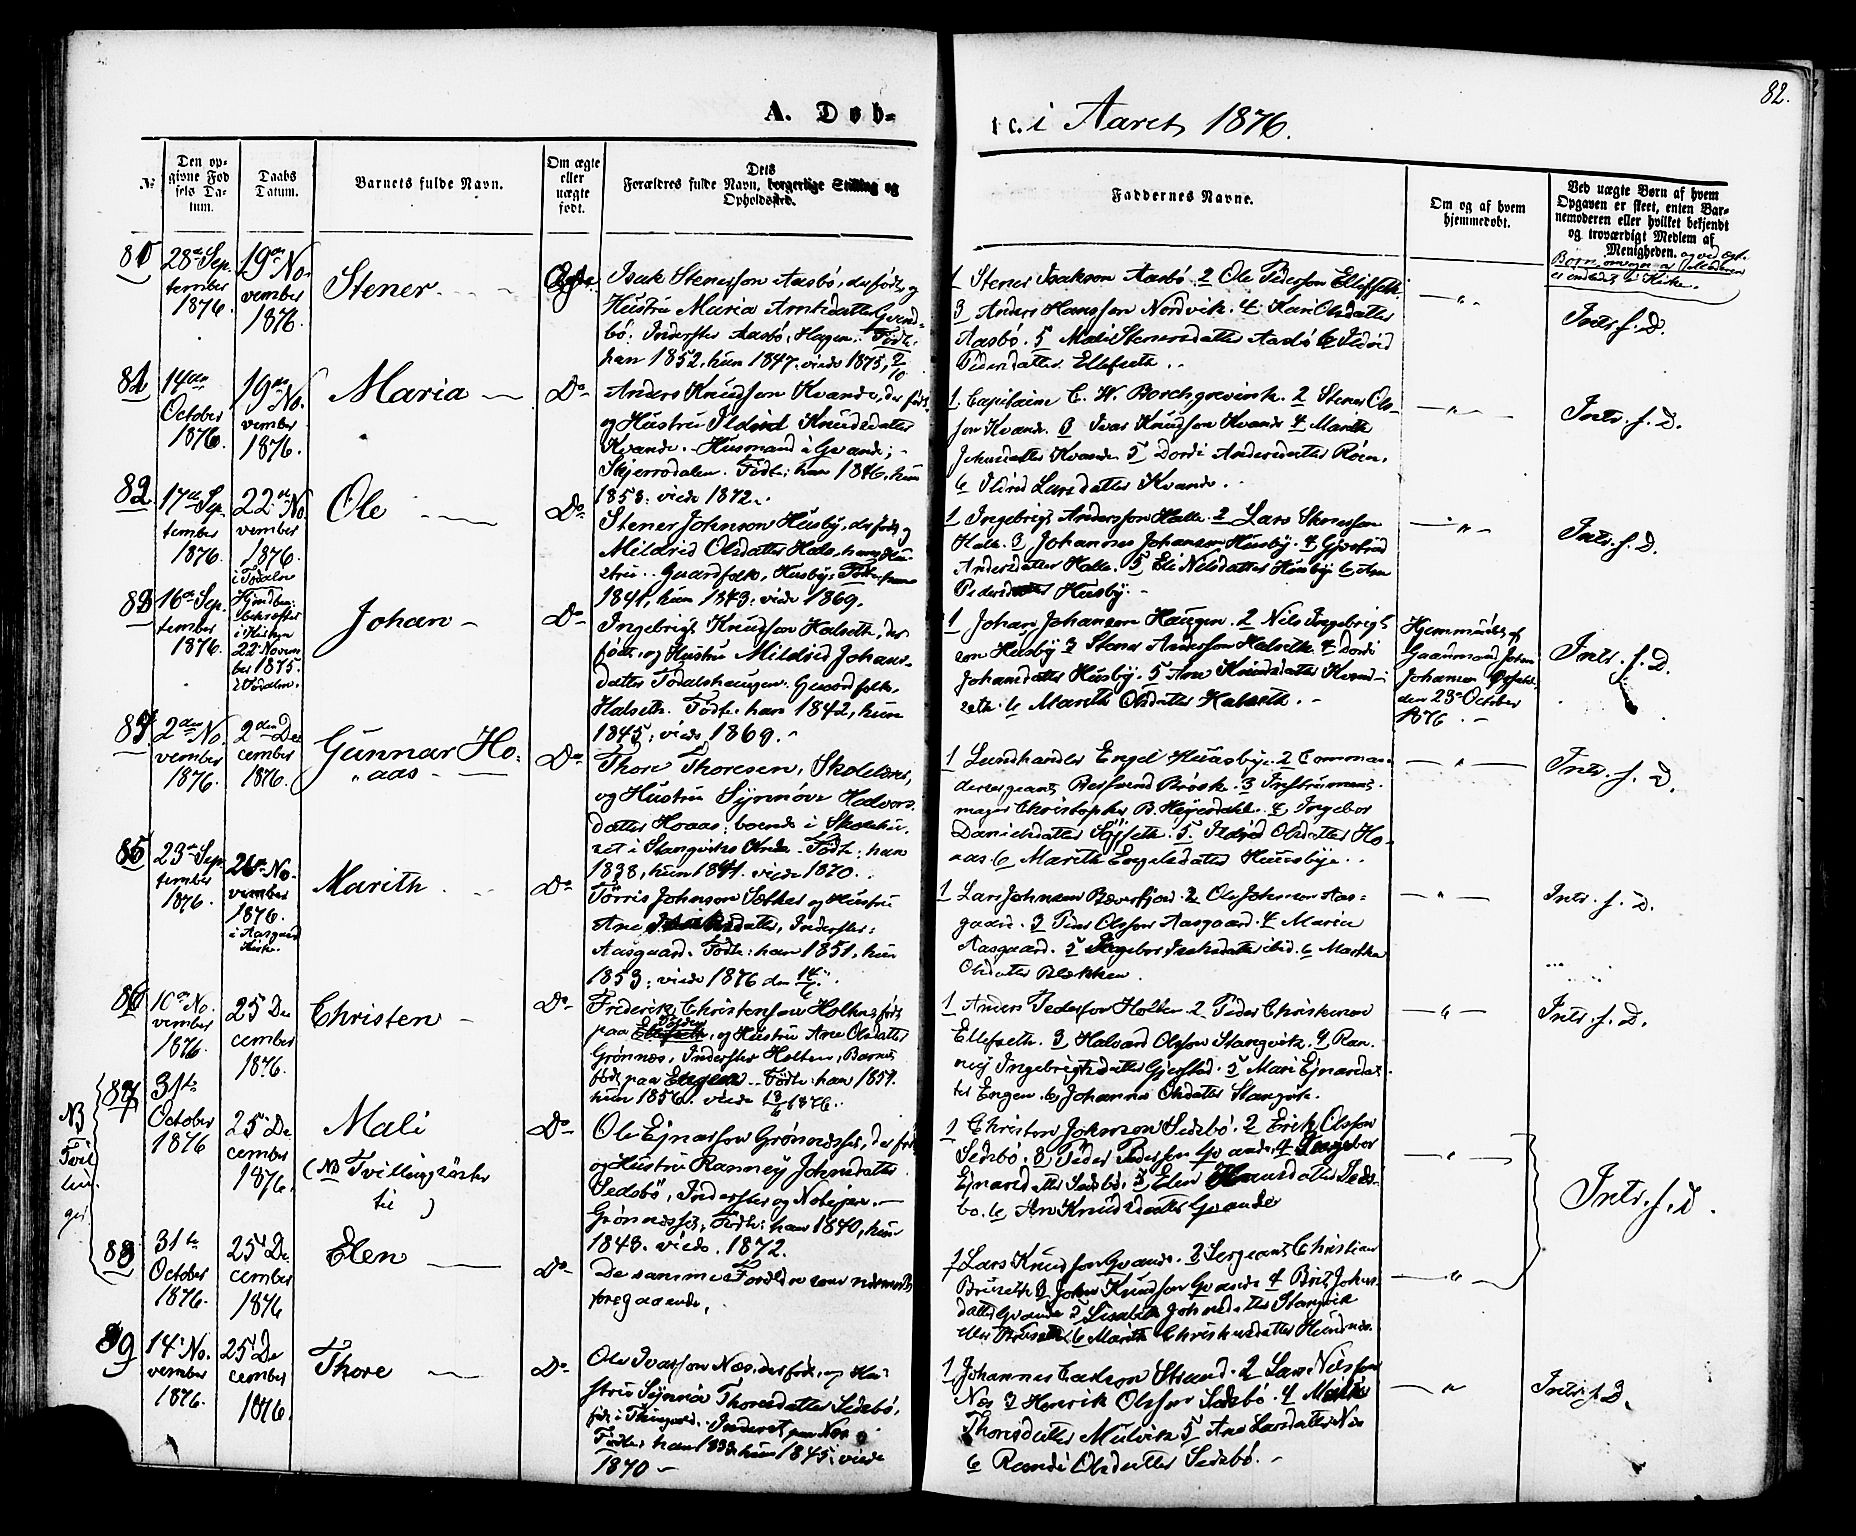 82.
A. Døb-
te. i Aaret 1876.
№
Den op-
givne Fød
sels Da-
tum.
Daabs
Datum.
Barnets fulde Navn.
Om ægte
eller
uægte
født.
Dets
Forældres fulde Navn, borgerlige Stilling og
Opholdssted.
Faddernes Navne.
Om og af hvem
hjemmedøbt.
Ved uægte Børn af hvem
Opgaven er skeet, enten Bar-
nemoderen eller hvilket bekjendt
og troværdigt Medlem af
Menigheden.
80
28de Sep-
tember
1876.
19de No-
vember
1876.
Stener
Isak Stenersson Aasbø, der født, og
Hustru Maria Arntsdatter
bø. Inderster Aasbø, Hagen. Født:
han 1852, hun 1847. viede 1875,
1 Stener Isakson Aasbø. 2 Ole Pederson Ellefseth.
3 Anders Hansson Nordvik. 4 Kari Olsdatter
Aasbø. 5 Mali Stenersdatter Aasbø 6 Ildrid
Pedersdatter Ellefseth.
Intr. f. D.
81
14de
October
1876.
19de No-
vember
1876.
Maria
Do
Anders Knudsson Kvande, der født,
og Hustru Ildrid Knudsdatter
Kvande. Husmand i Qvande;
Skjerrsdalen. Født: han 1846, hun
1853: viede 1872.
1. Capitaine C. W. Borchgrevink. 2 Stener Ols-
son Kvande. 3 Ivar Knudson Kvande 4 Marith
Johnsdatter Kvande 5 Dordi Andersdatter Røen.
6 Ildrid Larsdatter Kvande.
Intr. f. D.
82
17de Sep-
tember
1876.
22de No-
vember
1876.
i Todalen
Ole
Do
Stener Johnson Husby, der født, og
Mildrid Olsdatter Hals, hans Hu-
stru. Gaardfolk, Husby. Født: han
1841, hun 1843: viede 1869.
1 Ingebrigt Andersson Halle. 2 Lars Stenersson
Halle. 3 Johannes Johanson Husby. 4 Gjertrud
Andersdatter Halle. 5 Eli Nilsdatter Husby 6 Ane
Pedersdatter Husby.
Intr. f. D.
83
16de Sep-
tember
1876.
i Kirken
22 Novem-
ber 1875.
i Todalen.
Johan
Do
Ingebrigt Knudson Halseth, der
født, og Hustru Mildrid Johans-
datter Todalshaugen. Gaardfolk.
Halseth. Født: han 1842, hun
1845; viede 1869.
1 Johan Johanson Haugen. 2 Nils Ingebrigt-
son Husby 3 Stener Anderson Halseth. 4 Dordi
Johansdatter Husby. 5 Ane Knudsdatter
seth. 6 Marith Olsdatter Halseth.
Hjemmedøbt af
Gaarmand Johan
Johanson
den 23de October
1876.
Intr. f. D.
84
2den No-
vember
1876.
2den De-
cember
1876.
Gunnar Ho-
aas
Do
Thore Thoresen, Skolelærer,
og Hustru Synnøve Halvors-
datter Hoaas: boende i Skolehu-
set i Stangviks Sogn. Født: han
1838, hun 1841. viede 1870.
1 Landhandler Engel Huusbye. 2 Comman-
deersergeant Bersvend Brøsk. 3 Instruments-
mager Christopher B. Heyerdahl. 4 Ingebor
Danielsdatter Søyseth. 5 Ildrid Olsdatter Ho-
aas 6 Marith Engelsdatter Huusbye.
Intr. f. D.
85
23de Sep-
tember
1876.
26de No-
vember
1876.
i Aasgaard
Kirke.
Marith
Do
Tørris Johnson Sæther og Hustru
Ane Isaksdatter, Inderster:
Aasgaard. Født: han 1851, hun
1853; viede 1876 den 14/6.
1 Lars Johnson Bæverfjord. 2 Ole Johnson Aas-
gaard. 3 Peder Olsson Aasgaard. 4 Maria
Aasgaard. 5 Ingebor Isaksdatter ibid. 6 Martha
Olsdatter Blekken.
Intr. f. D.
86
10de No-
vember
1876.
25 De-
cember
1876.
Christen
Do
Frederik Christenson Holten, født
paa Ellefseth, og Hustru Ane Olsdatter
Grønnæs, Inderster Holten, Barnet
født paa Engen. Født: han 1851.
hun 1856. viede 1876.
1 Anders Pederson Holten. 2 Peder Christenson
Ellefseth. 3 Halvard Olsson Stangvik. 4 Ran-
nei Ingebrigtsdatter Gjersted. 5 Mari Ejnarsdat-
ter Engen. 6 Johanna Olsdatter Stangvik.
Intr. f. D.
NB
Tvil-
lin-
ger.
87
31te
October
1876
25 De-
cember
1876.
Mali
(NB Tvillingsöster
til )
Do
Ole Ejnarson Grønnæsset, der født,
og Hustru Rannei Johnsdatter
Sedsbö, Inderster og Notejer.
Grønnæsset. Født: han 1840, hun
1843. viede 1872.
1 Christen Johnson Sedsbö. 2 Erik Olsson
Sedsbö. 3 Peder Pederson Qvande. 4 Ingebor
Ejnarsdatter Sedsbö. 5 Elen
bø. 6 An Knudsdatter Qvande
Intr. f. D.
88
31te
October
1876.
25 De-
cember
1876
Elen
Do
De samme Forældre som nærmest
foregaaende.
1 Lars Knudson Qvande. 2 Sergeant Christian
Bruseth 3 John Knudson Qvande 4 Brit Johns-
datter Qvande 5 Lisabeth Johnsdatter Stangvik
6 Marith Christensdatter
89
14de No-
vember
1876.
25 De-
cember
1876.
Thore
Do
Ole Ivarson Næs, der født, og Hu-
stru Synnøv Thoresdatter Sedsbö,
født i Thingvold. Inderst paa Næs
Født: han 1838 hun 1845: viede
1870
1 Johannes Strand. 2 Lars Nilsson
Næs 3 Henrik Olsson Sedsbø. 4 Marith
Thoresdatter Mulvik 5 Ane Larsdatter Næs
6 Randi Olsdatter Sedsbö.
Intr. f. D.